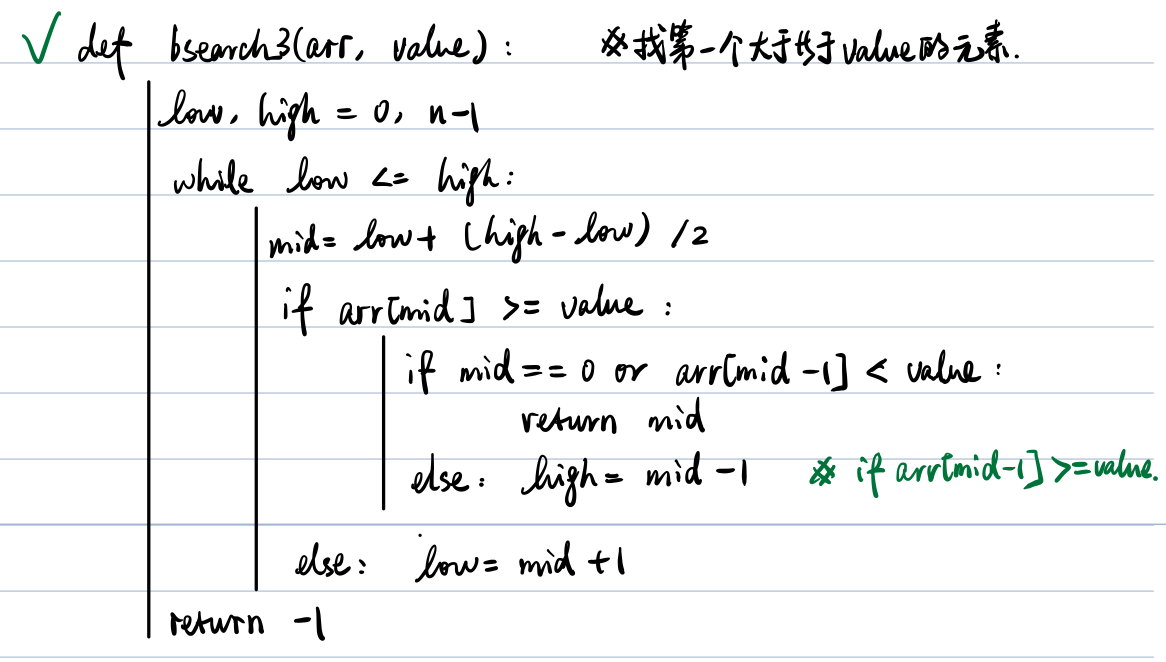 ✓ def bsearch3(arr, value): ※找第一个大于等于value的元素.
low, high = 0, n-1
while low <= high:
mid= low+ (high-low) /2
if arr[mid] >= value :
if mid == 0 or arr[mid-1] < value :
return mid
else: high= mid -1 ※ if arr[mid-1] >=value.
else: low= mid +1
return -1